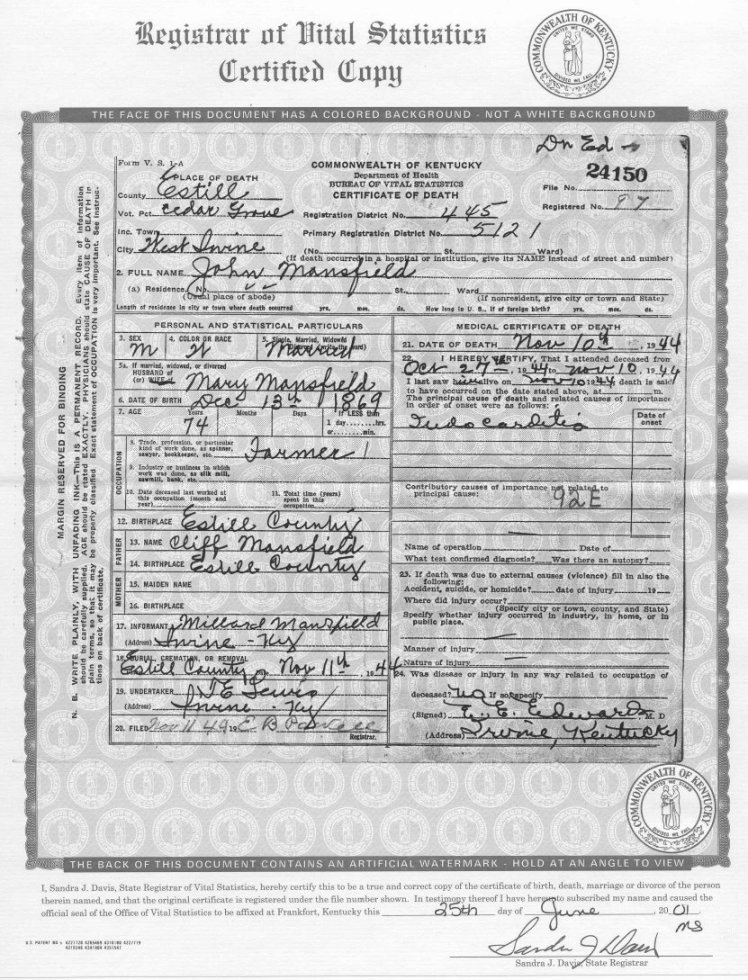 Registrar of Vital Statistics
Certified Copy
COMMONWEALTH OF KENTUCKY
UNITED WE STAND
DIVIDED WE FALL
THE FACE OF THIS DOCUMENT HAS A COLORED BACKGROUND - NOT A WHITE BACKGROUND
MARGIN RESERVED FOR BINDING
N. B. WRITE PLAINLY, WITH UNFADING INK—This IS A PERMANENT RECORD. Every item of information
should be carefully supplied. AGE should be stated EXACTLY. PHYSICIANS should state CAUSE OF DEATH in
plain terms, so that it may be properly classified. Exact statement of OCCUPATION is very important. See instruc-
tions on back of certificate.
Dn Ed
Form V. S. 1-A
COMMONWEALTH OF KENTUCKY
Department of Health
BUREAU OF VITAL STATISTICS
CERTIFICATE OF DEATH
24150
File No.
Registered No. 97
1. PLACE OF DEATH
County Estill
Vot. Pct. Cedar Grove
Registration District No. 445
Inc. Town
Primary Registration District No. 5121
City West Irvine (No. St. Ward)
(If death occurred in a hospital or institution, give its NAME instead of street and number)
2. FULL NAME John Mansfield
(a) Residence. No. St. Ward
(Usual place of abode) (If nonresident, give city or town and State)
Length of residence in city or town where death occurred yrs. mos. ds. How long in U. S., if of foreign birth? yrs. mos. ds.
PERSONAL AND STATISTICAL PARTICULARS
3. SEX M
4. COLOR OR RACE W
5. Single, Married, Widowed Married
5a. If married, widowed, or divorced
HUSBAND of
(or) WIFE of Mary Mansfield
6. DATE OF BIRTH Dec 13th 1869
7. AGE Years 74 Months Days If LESS than
1 day hrs.
or min.
OCCUPATION
8. Trade, profession, or particular
kind of work done, as spinner,
sawyer, bookkeeper, etc. Farmer
9. Industry or business in which
work was done, as silk mill,
sawmill, bank, etc.
10. Date deceased last worked at
this occupation (month and
year)
11. Total time (years)
spent in this
occupation
12. BIRTHPLACE Estill County
FATHER
13. NAME Cliff Mansfield
14. BIRTHPLACE Estill County
MOTHER
15. MAIDEN NAME
16. BIRTHPLACE
17. INFORMANT Millard Mansfield
(Address) Irvine - Ky
18. BURIAL, CREMATION, OR REMOVAL
Estill County Nov 11th, 1944
19. UNDERTAKER Lewis
(Address) Irvine - Ky
20. FILED Nov 11 44 19 E B
Registrar.
MEDICAL CERTIFICATE OF DEATH
21. DATE OF DEATH Nov 10th, 1944
22. I HEREBY CERTIFY, That I attended deceased from
Oct 27th, 1944 to Nov 10, 1944
I last saw him alive on Nov 10 1944 death is said
to have occurred on the date stated above, at m.
The principal cause of death and related causes of importance
in order of onset were as follows:
Date of
onset
Endocarditis
Contributory causes of importance not related to
principal cause:
92E
Name of operation Date of
What test confirmed diagnosis? Was there an autopsy?
23. If death was due to external causes (violence) fill in also the
following:
Accident, suicide, or homicide? date of injury 19
Where did injury occur?
(Specify city or town, county, and State)
Specify whether injury occurred in industry, in home, or in
public place.
Manner of injury
Nature of injury
24. Was disease or injury in any way related to occupation of
deceased? No If so, specify
(Signed) E. E. Edwards, M. D
(Address) Irvine, Kentucky
COMMONWEALTH OF KENTUCKY
THE BACK OF THIS DOCUMENT CONTAINS AN ARTIFICIAL WATERMARK - HOLD AT AN ANGLE TO VIEW
I, Sandra J. Davis, State Registrar of Vital Statistics, hereby certify this to be a true and correct copy of the certificate of birth, death, marriage or divorce of the person
therein named, and that the original certificate is registered under the file number shown. In testimony thereof I have hereunto subscribed my name and caused the
official seal of the Office of Vital Statistics to be affixed at Frankfort, Kentucky this 25th day of June, 2001
ms
Sandra J Davis
Sandra J. Davis, State Registrar